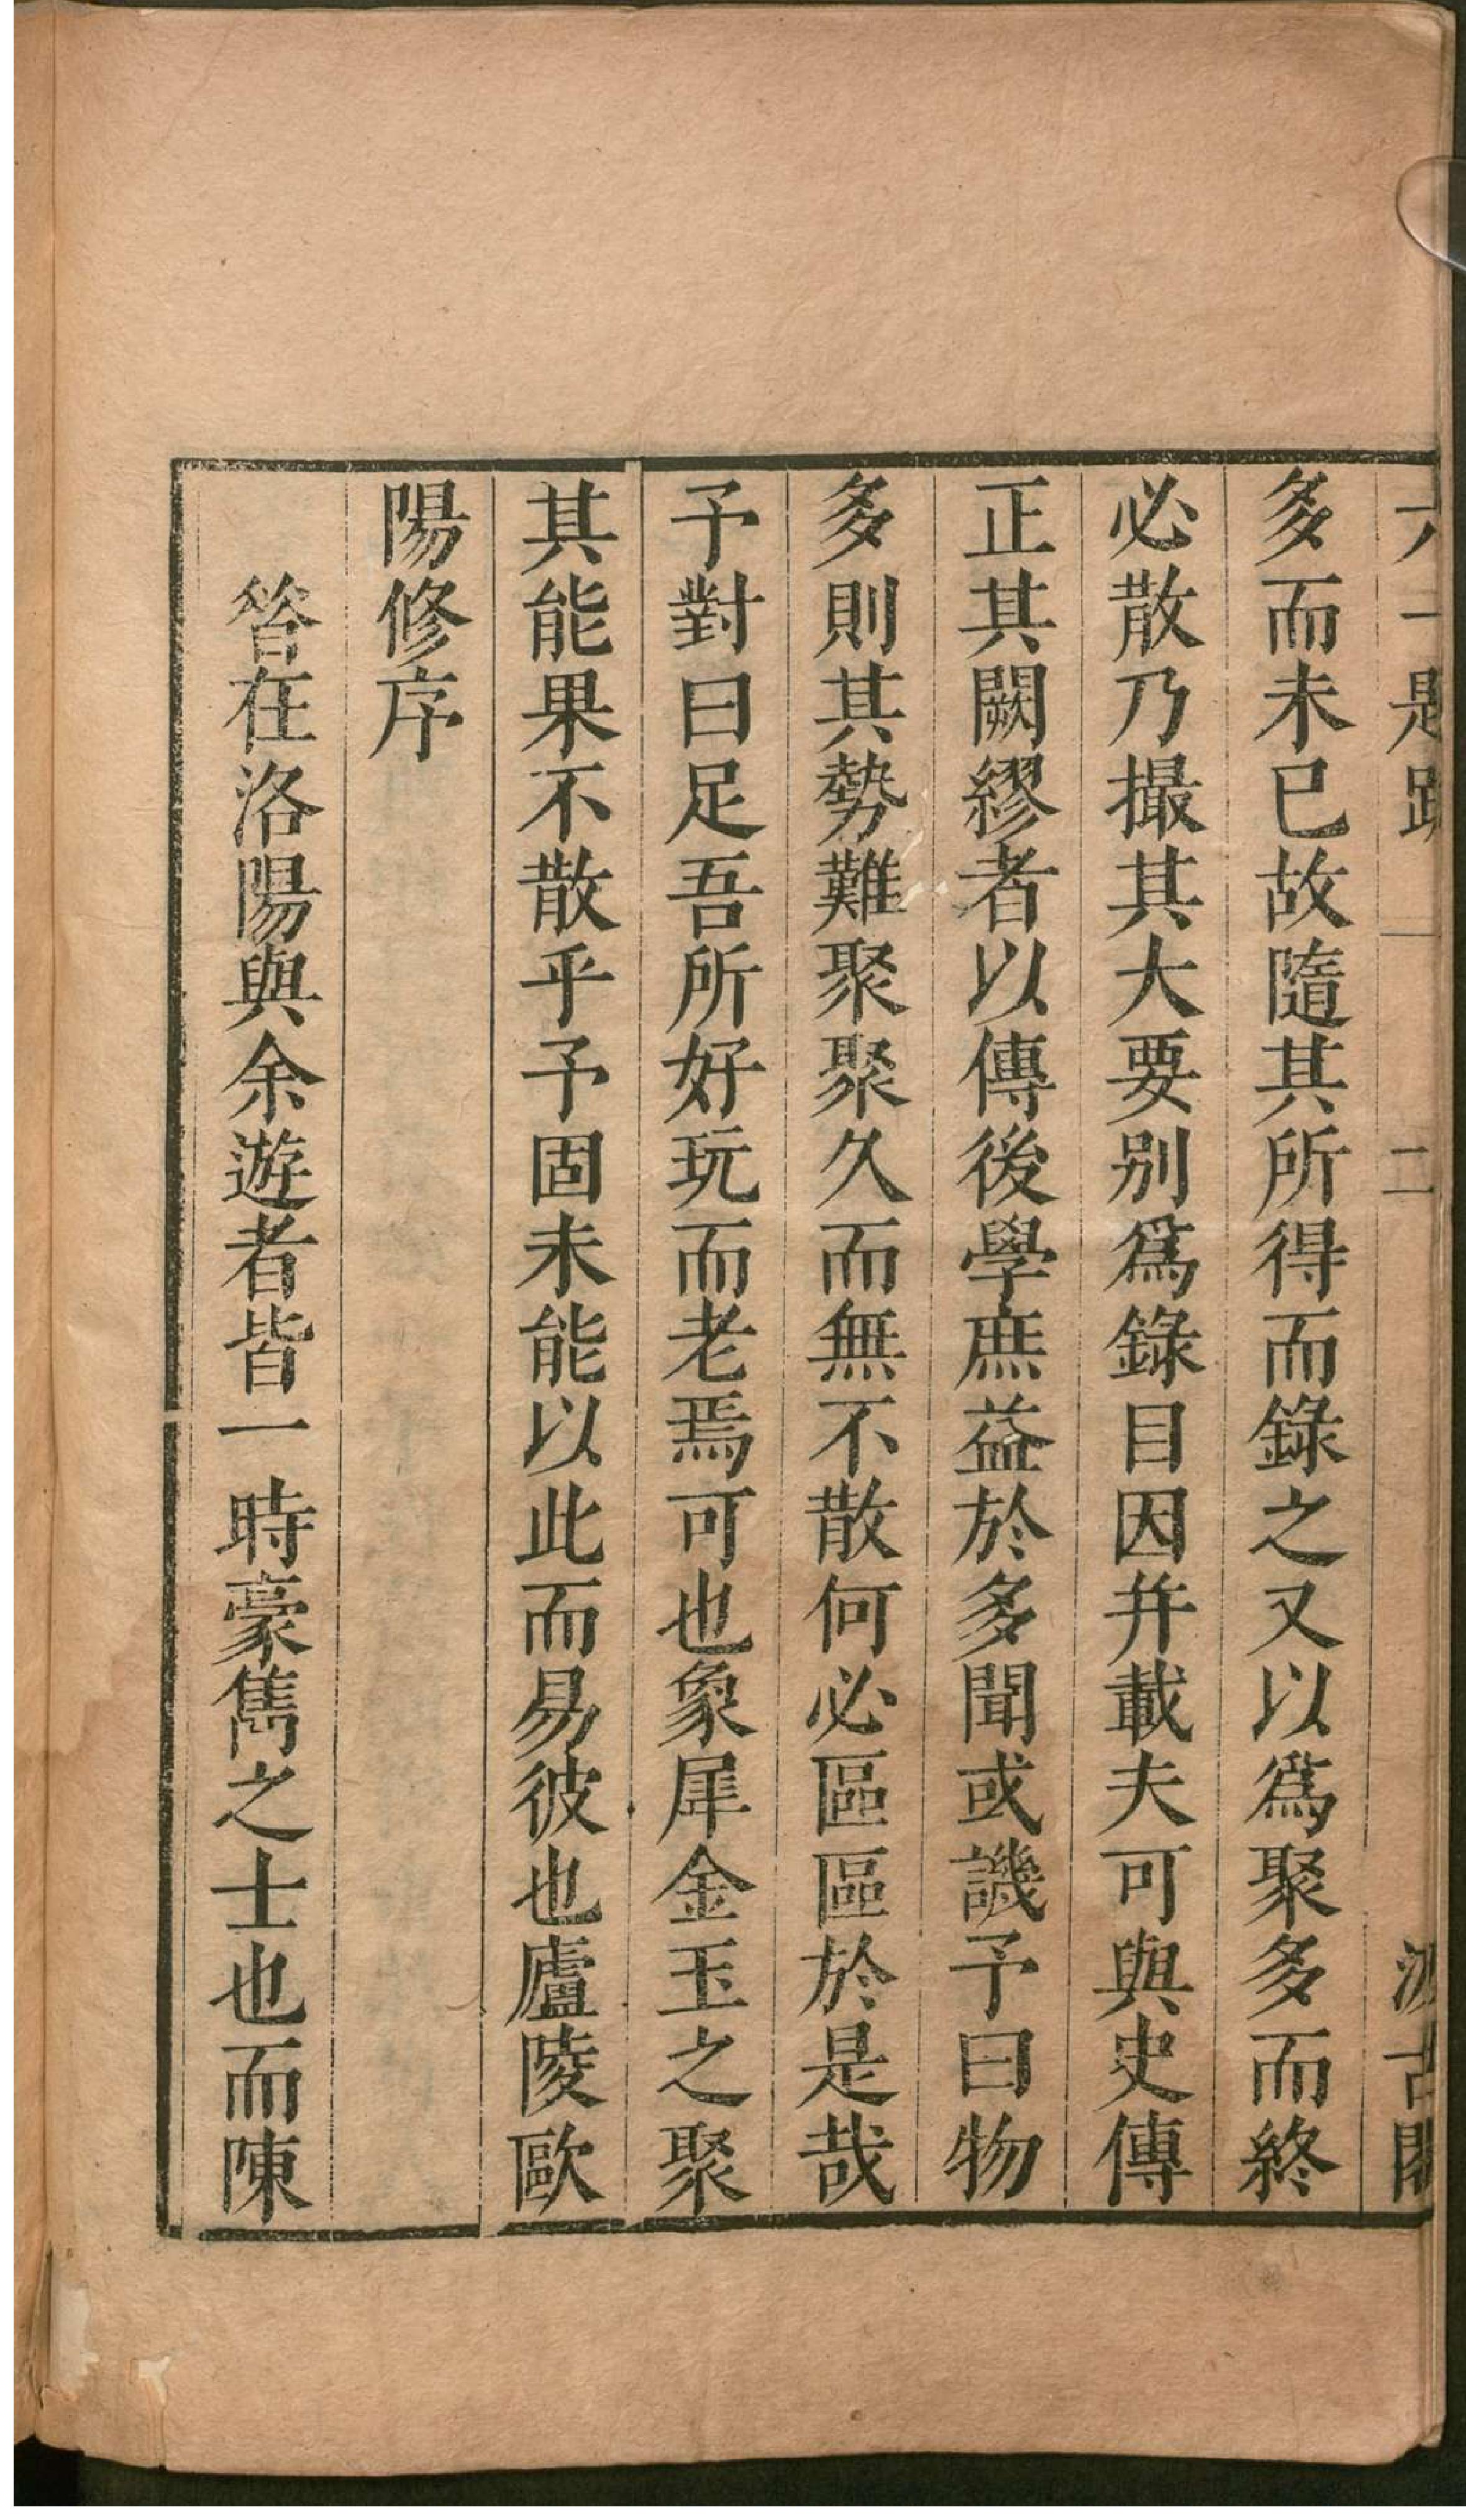 六一題跋 二 汲古閣
多而未已故隨其所得而錄之又以爲聚多而終
必散乃撮其大要别爲錄目因并載夫可與史傳
正其闕繆者以傳後學庶益於多聞或譏予曰物
多則其勢難聚聚久而無不散何必區區於是哉
予對曰足吾所好玩而老焉可也象犀金玉之聚
其能果不散乎予固未能以此而易彼也廬陵歐
陽修序
㫺在洛陽與余遊者皆一時豪雋之士也而陳